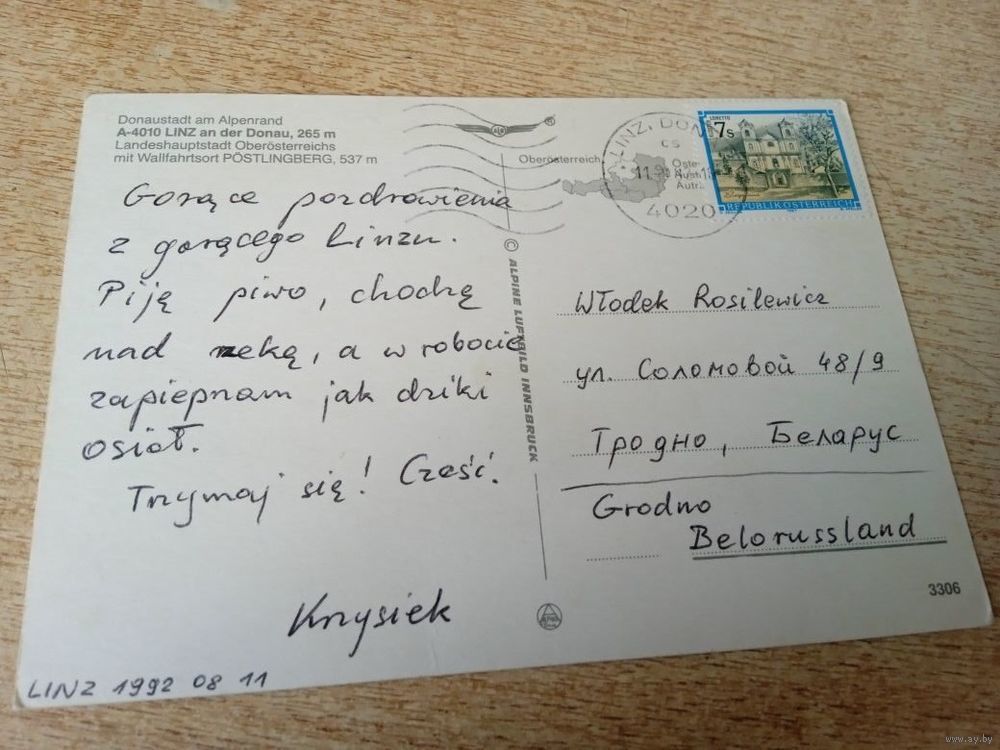 Donaustadt am Alpenrand
A-4010 LINZ an der Donau, 265 m
Landeshauptstadt Oberösterreichs
mit Wallfahrtsort PÖSTLINGBERG, 537 m
Gorące pozdrowienia
z gorącego Linzu.
Piję piwo, chodzę
nad rzeką, a w robocie
zapieprzam jak dziki
osioł.
Trzymaj się! Cześć.
Krzysiek
LINZ 1992 08 11
© ALPINE LUFTBILD INNSBRUCK
Oberösterreich
LINZ, DON
CS
4020
LORETTO
7s
REPUBLIK ÖSTERREICH
Włodek Rosilewicz
ул. Соломовой 48/9
Гродно, Беларус
Grodno
Belorussland
3306
www.ay.by